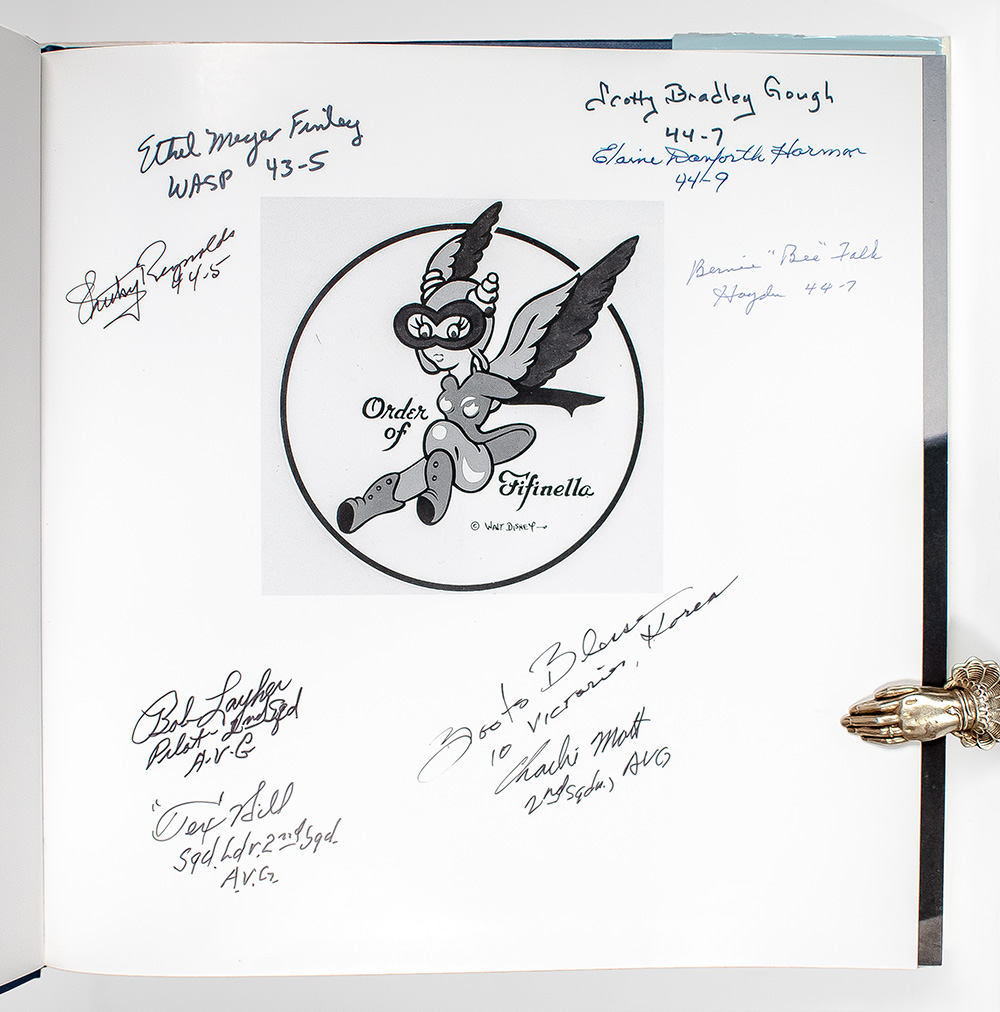 Ethel Meyer Finley
WASP 43-5
Scotty Bradley Gough
44-7
Elaine Danforth Harmon
44-9
Reynolds
44-5
Bernie "Bee" Falk
Haydu 44-7
Order
of
Fifinella
© WALT DISNEY
Bob Layher
Pilot 2nd Sqd
A.V.G
"Tex" Hill
Sqd. Ldr. 2nd Sqd.
A.V.G.
Boots Blesse
10 Victories, Korea
Charlie Mott
2nd Sqdn., AVG